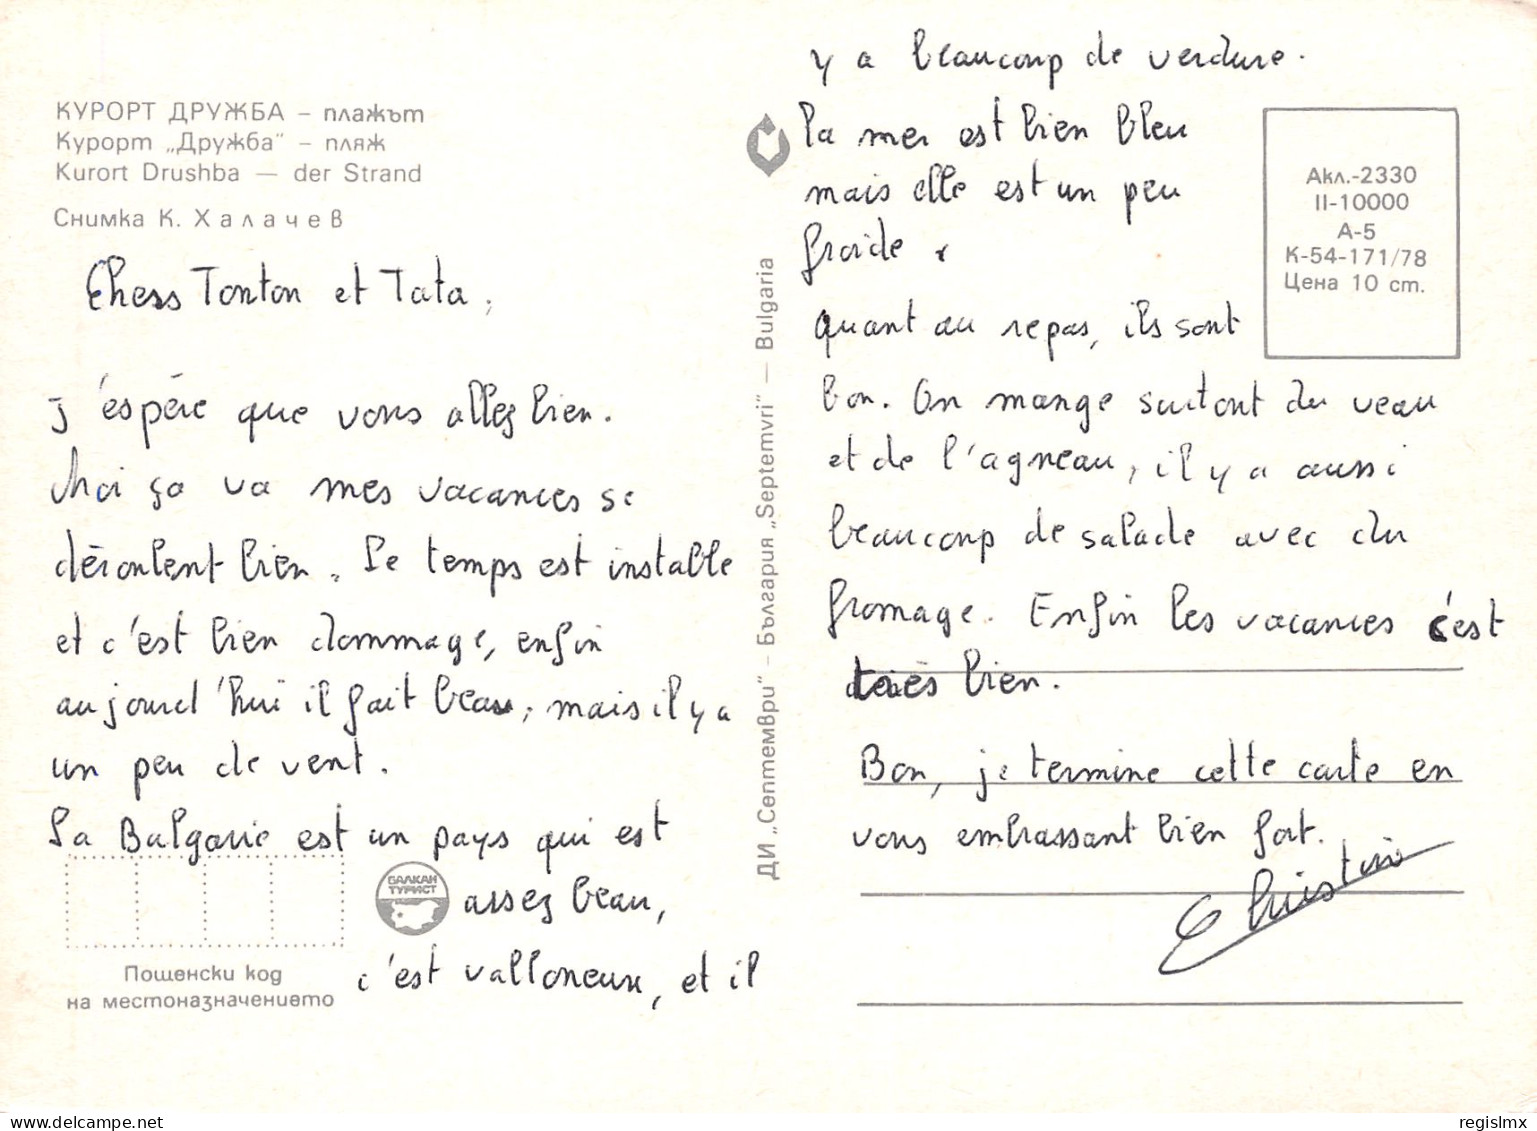 КУРОРТ ДРУЖБА – плажът
Курорт „Дружба“ – пляж
Kurort Drushba — der Strand
Снимка К. Халачев
Chers Tonton et Tata,
J'espère que vous allez bien.
Moi ça va mes vacances se
déroulent bien. Le temps est instable
et c'est bien dommage, enfin
aujourd'hui il fait beau, mais il y a
un peu de vent.
La Bulgarie est un pays qui est
assez beau,
c'est valloneux, et il
БАЛКАН
ТУРИСТ
Пощенски код
на местоназначението
ДИ „Септември“ – България „Septemvri“ — Bulgaria
y a beaucoup de verdure.
la mer est bien bleu
mais elle est un peu
froide.
quant au repas, ils sont
bon. On mange surtout du veau
et de l'agneau, il y a aussi
beaucoup de salade avec du
fromage. Enfin les vacances c'est
très bien.
Bon, je termine cette carte en
vous embrassant bien fort.
Christine
Акл.-2330
II-10000
А-5
К-54-171/78
Цена 10 ст.
www.delcampe.net
regislmx